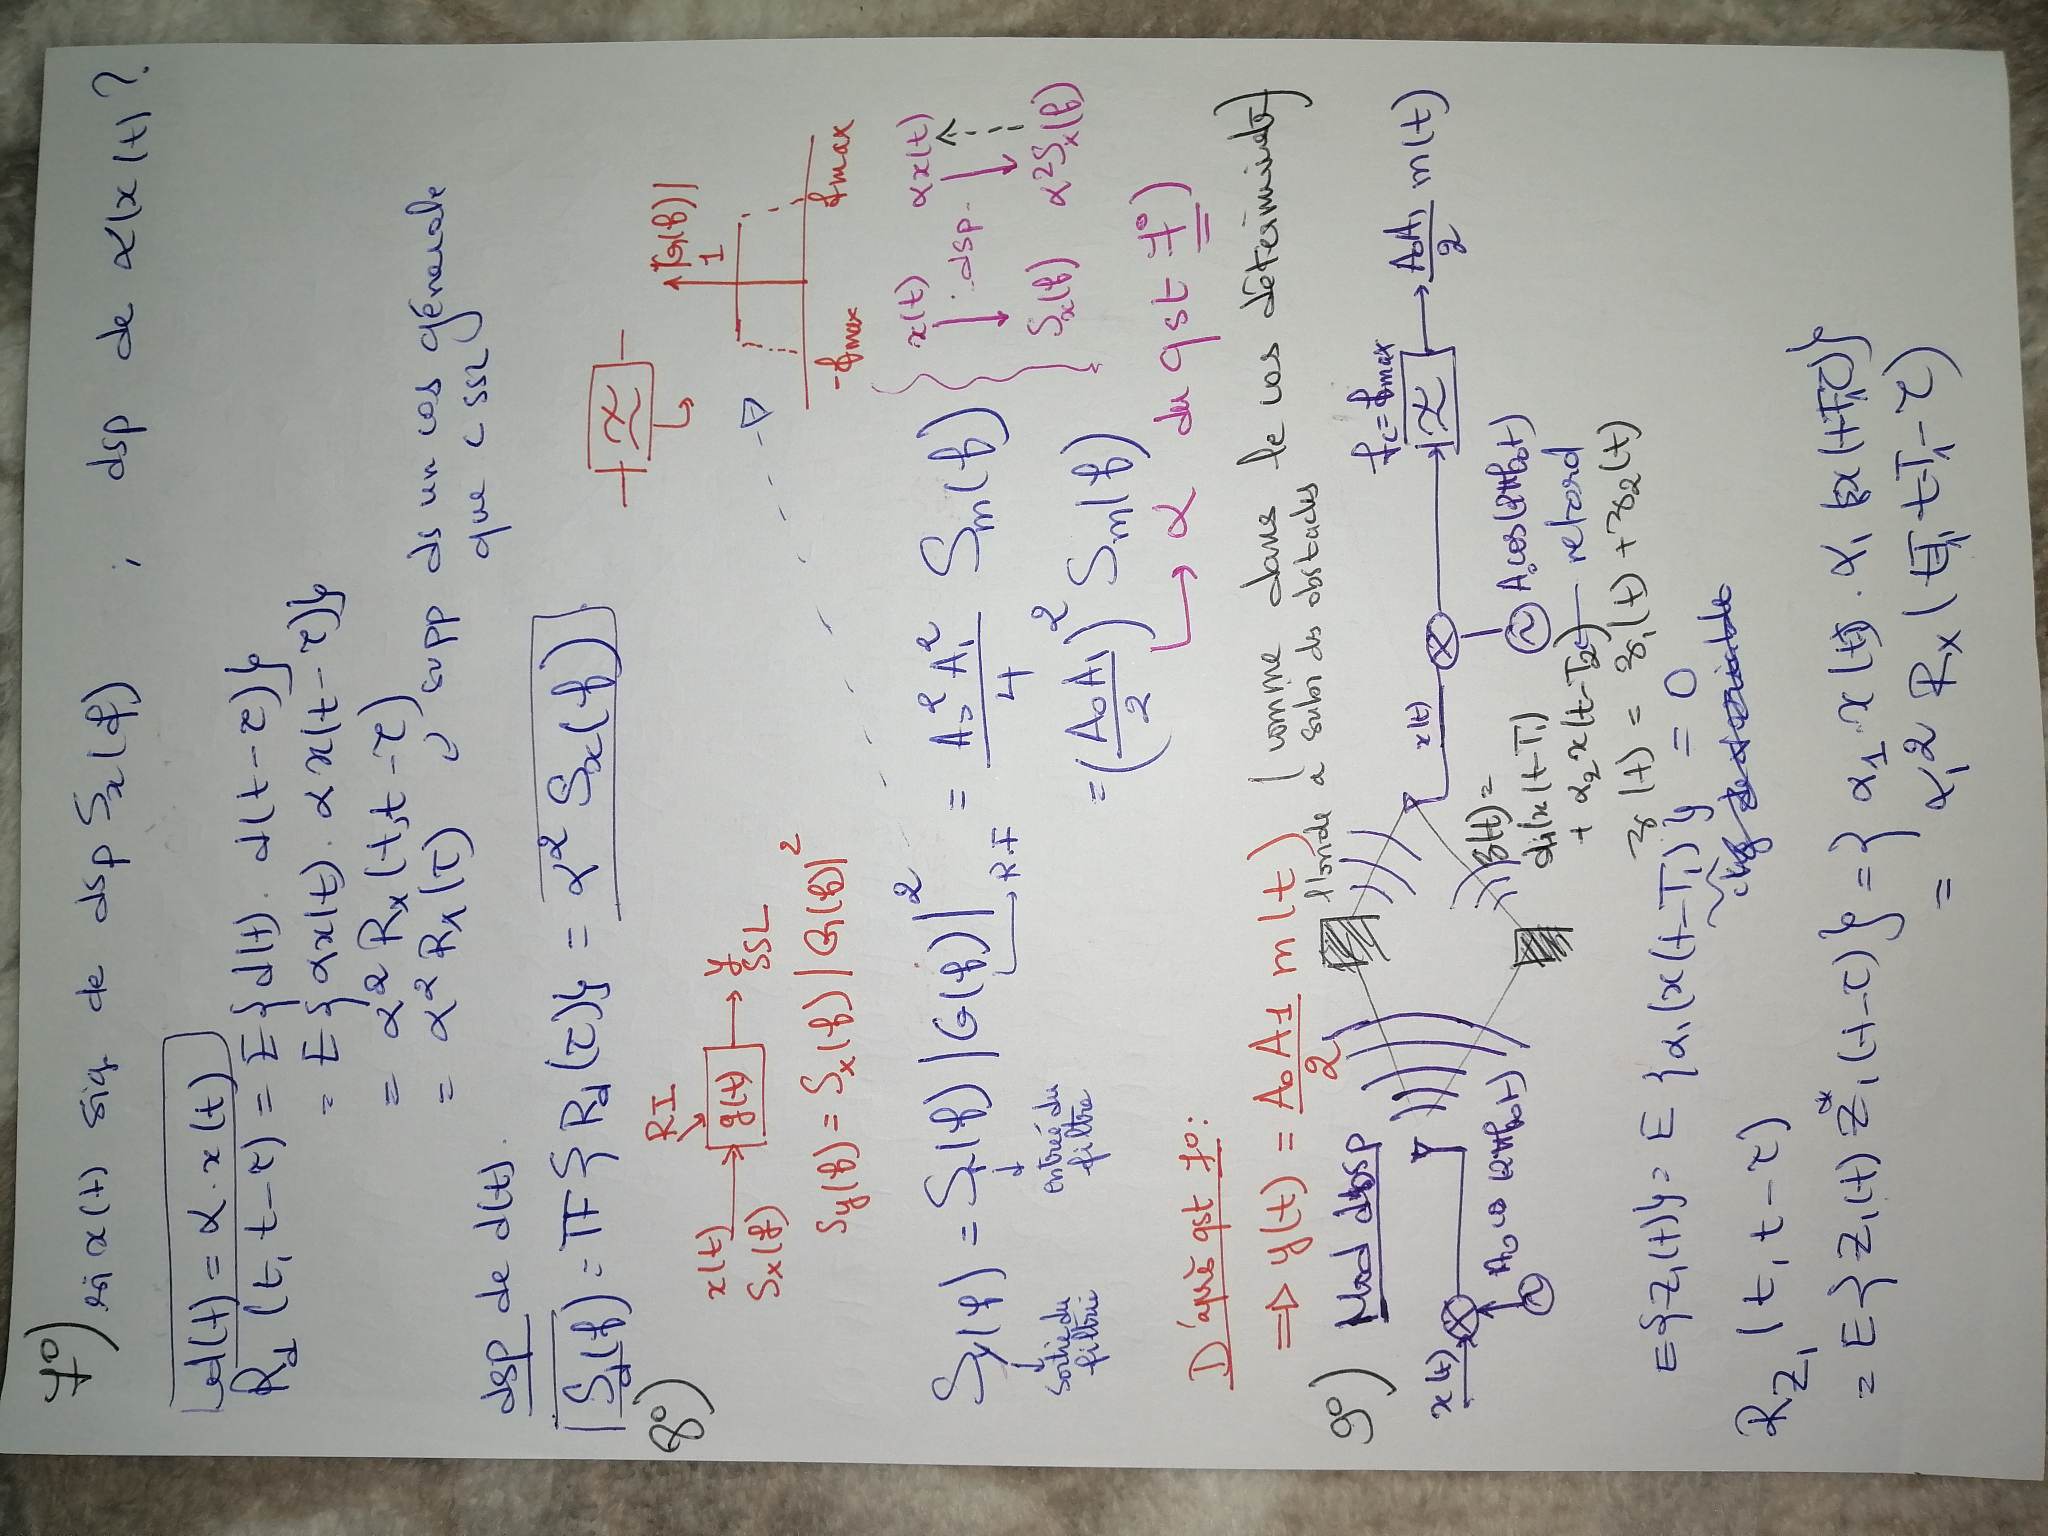 7°) si x(t) sig de dsp Sx(f) , dsp de α(x(t) ?
d(t) = α . x(t)
Rd (t, t-τ) = E{d(t). d(t-τ)}
= E{αx(t). αx(t-τ)}
= α² Rx(t,t-τ)
= α² Rx(τ) , supp ds un cas générale
que c SSL
dsp de d(t).
Sd(f) = TF{Rd(τ)} = α² Sx(f)
8°)
RI
x(t) g(t) y
Sx(f) SSL
Sy(f) = Sx(f) |G(f)|²
|G(f)|
1
-fmax fmax
Sy(f) = Sr(f) |G(f)|² = A0² A1² / 4 Sm(f)
R.F
Sortie du filtre
entreé du filtre
= (A0 A1 / 2)² Sm(f)
α du qst 7°)
x(t) αx(t)
dsp.
Sx(f) α²Sx(f)
D'après qst 7°:
=> y(t) = A0 A1 / 2 m(t) (comme dans le cas déterministe)
l'onde a subi ds obstacles
9°) Mod dbsp
fc = fmax
x(t) x(t) A0A1 / 2 m(t)
A0 cos(2πf0t) A1cos(2πf0t)
z(t) =
α1(x(t-T1)
+ α2 x(t-T2) retard
z(t) = z1(t) + z2(t)
E{Z1(t)} = E{α1(x(t-T1)} = 0
RZ1 (t, t-τ)
= E{Z1(t) Z*1(t-τ)} = { α1 x(t) . α1 x(t-T1-τ)}
= α1² Rx(t-T1, t-T1-τ)